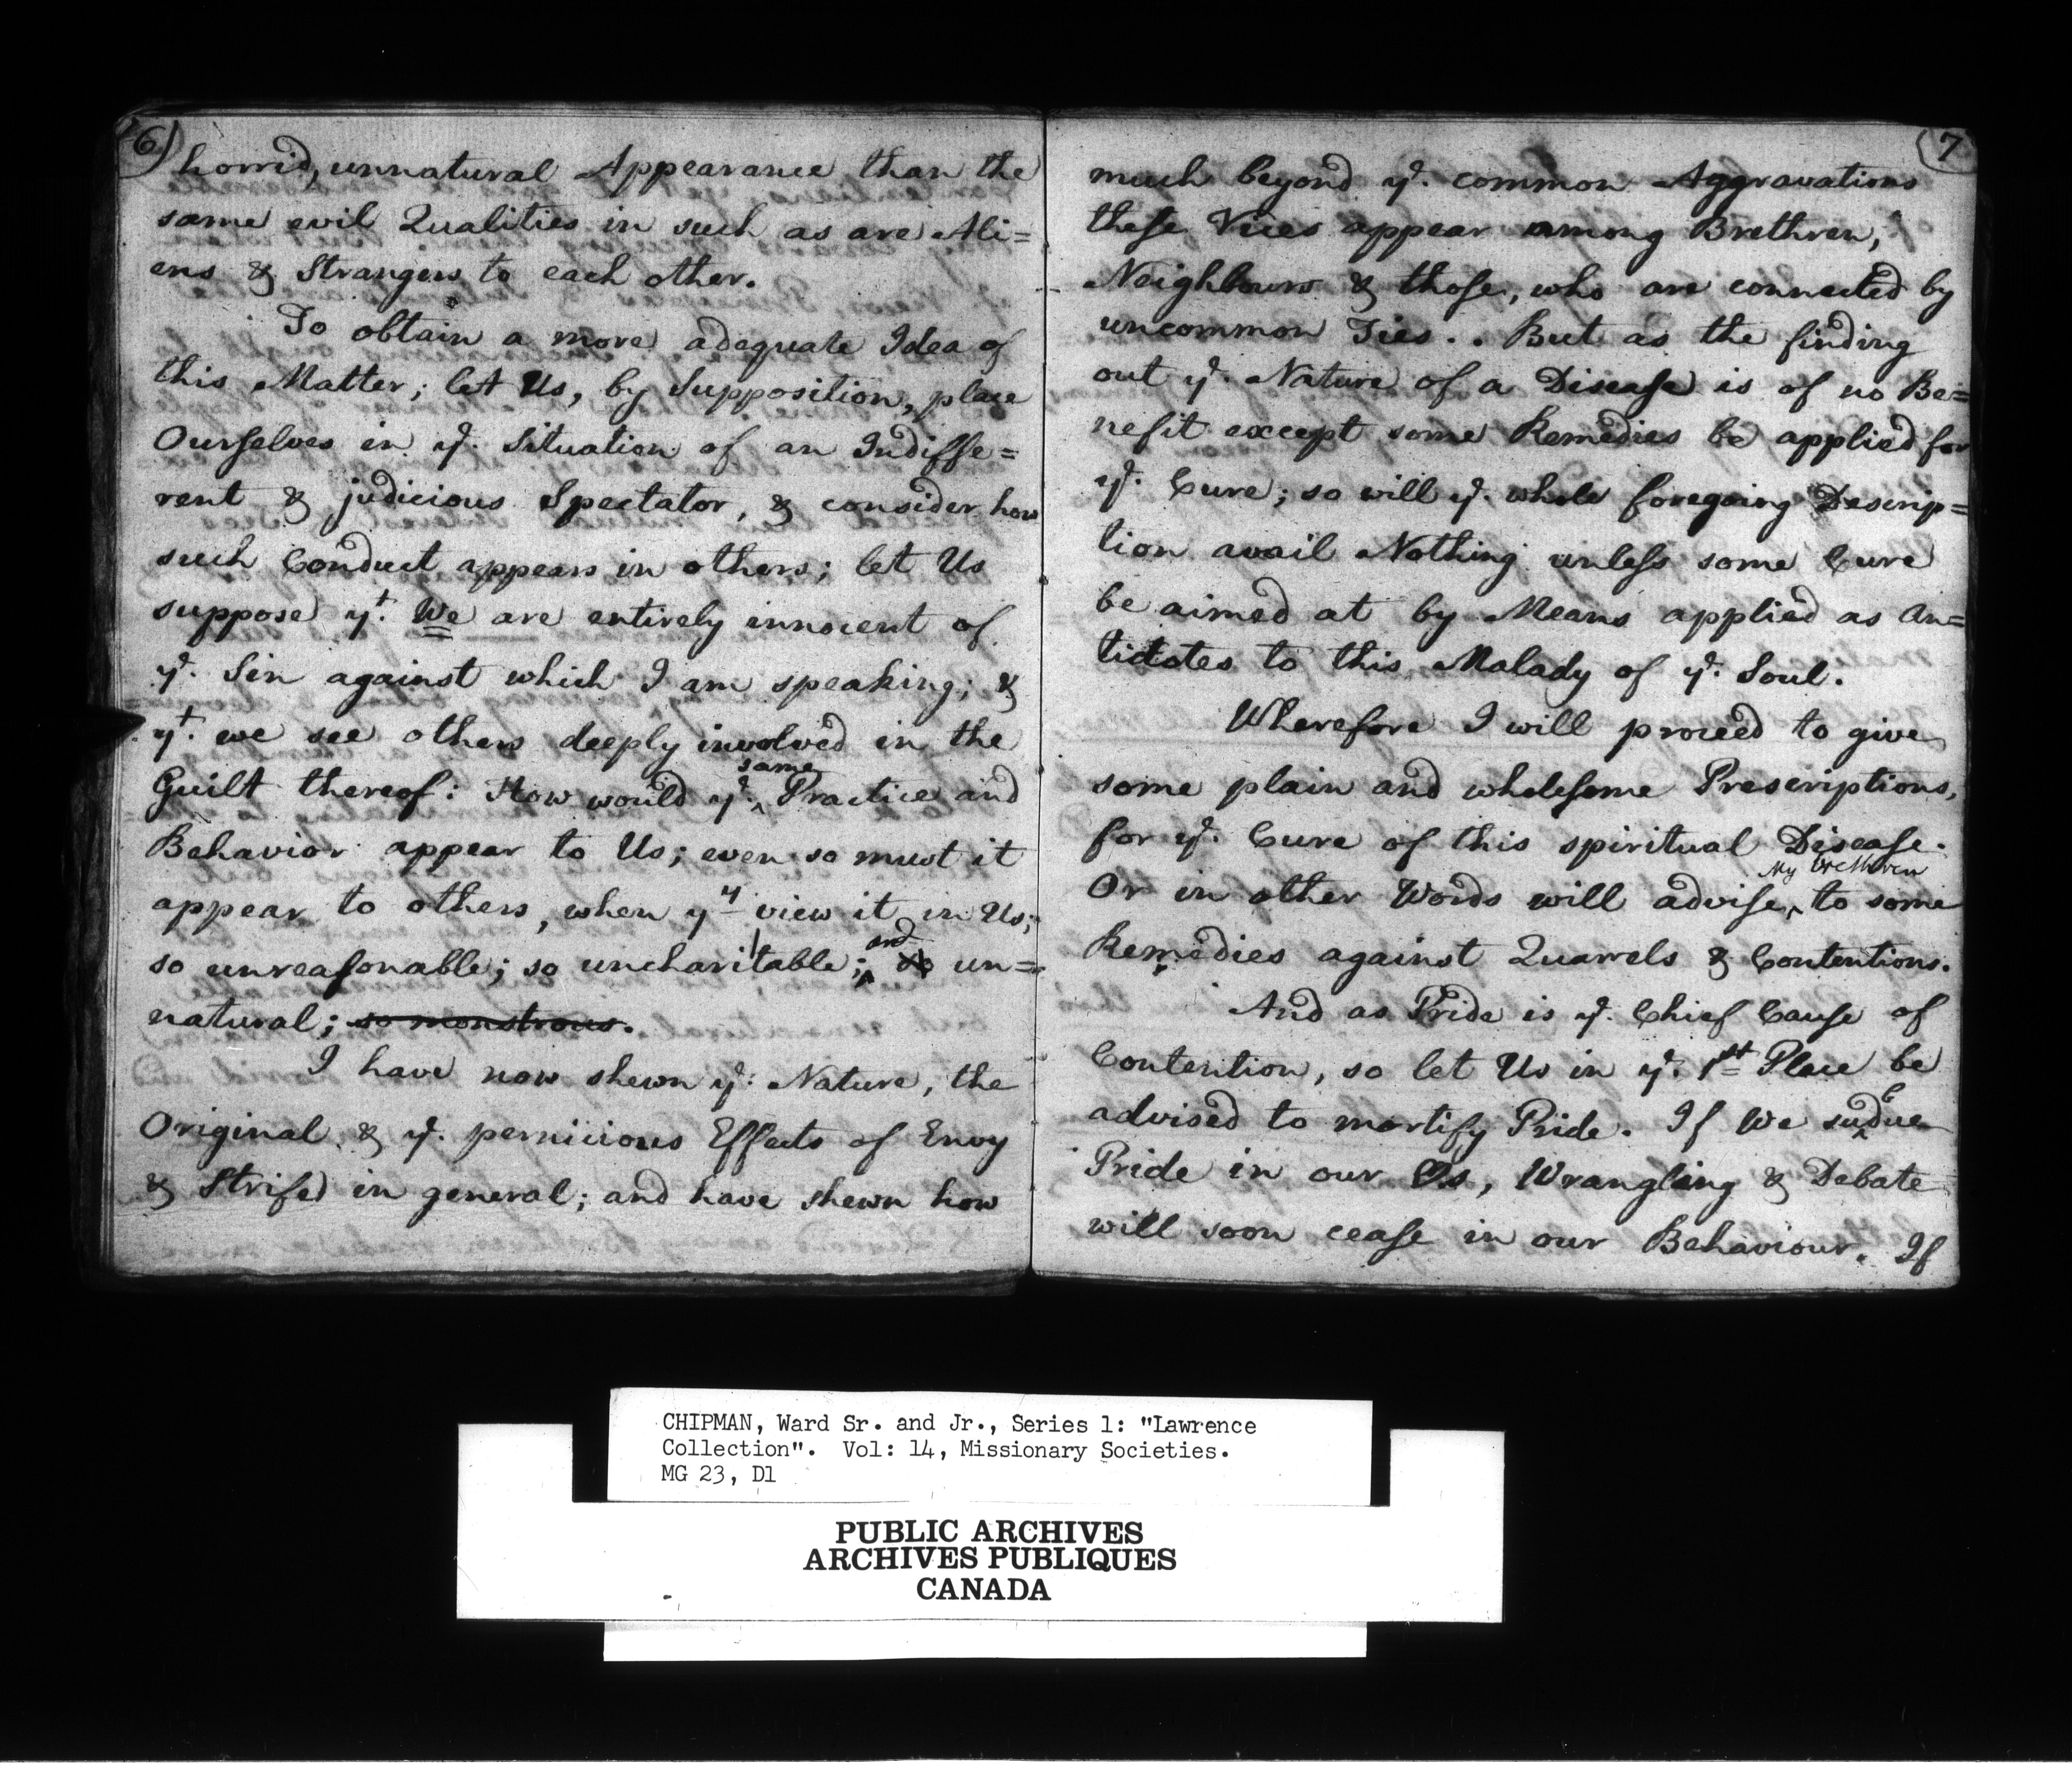 6)
horrid, unnatural Appearance than the
same evil Qualities in such as are Ali=
ens & Strangers to each other.
To obtain a more adequate Idea of
this Matter; let Us, by Supposition, place
Ourselves in yᵉ. Situation of an Indiffe=
rent & judicious Spectator, & consider how
such Conduct appears in others; let Us
suppose yᵗ. We are entirely innocent of
yᵉ. Sin against which I am speaking; &
yᵗ. we see others deeply involved in the
Guilt thereof: How would yᵉ. ‸same Practice and
Behavior appear to Us; even so must it
appear to others, when yʸ view it in Us;
so unreasonable; so uncharitable; ‸and ~~so~~ un=
natural; ~~so monstrous.~~
I have now shewn yᵉ: Nature, the
Original & yᵉ. pernicious Effects of Envy
& Strife in general; and have shewn how
(7
much beyond yᵉ. common Aggravations
these Vices appear among Brethren,
Neighbours & those, who are connected by
uncommon Ties.. But as the finding
out yᵉ. Nature of a Disease is of no Be=
nefit except some Remedies be applied for
yᵉ. Cure; so will yᵉ. whole foregoing Descrip=
tion avail Nothing unless some Cure
be aimed at by Means applied as An=
tidotes to this Malady of yᵉ. Soul.
Wherefore I will proceed to give
some plain and wholesome Prescriptions,
for yᵉ. Cure of this spiritual Disease.
Or in other Words will advise ‸My brethren to some
Remedies against Quarrels & Contentions.
And as Pride is yᵉ. Chief Cause of
Contention, so let Us in yᵉ. 1st Place be
advised to mortify Pride. If We su‸bdue
Pride in our , Wrangling & Debate
will soon cease in our Behaviour. If
CHIPMAN, Ward Sr. and Jr., Series 1: "Lawrence
Collection". Vol: 14, Missionary Societies.
MG 23, D1
PUBLIC ARCHIVES
ARCHIVES PUBLIQUES
CANADA